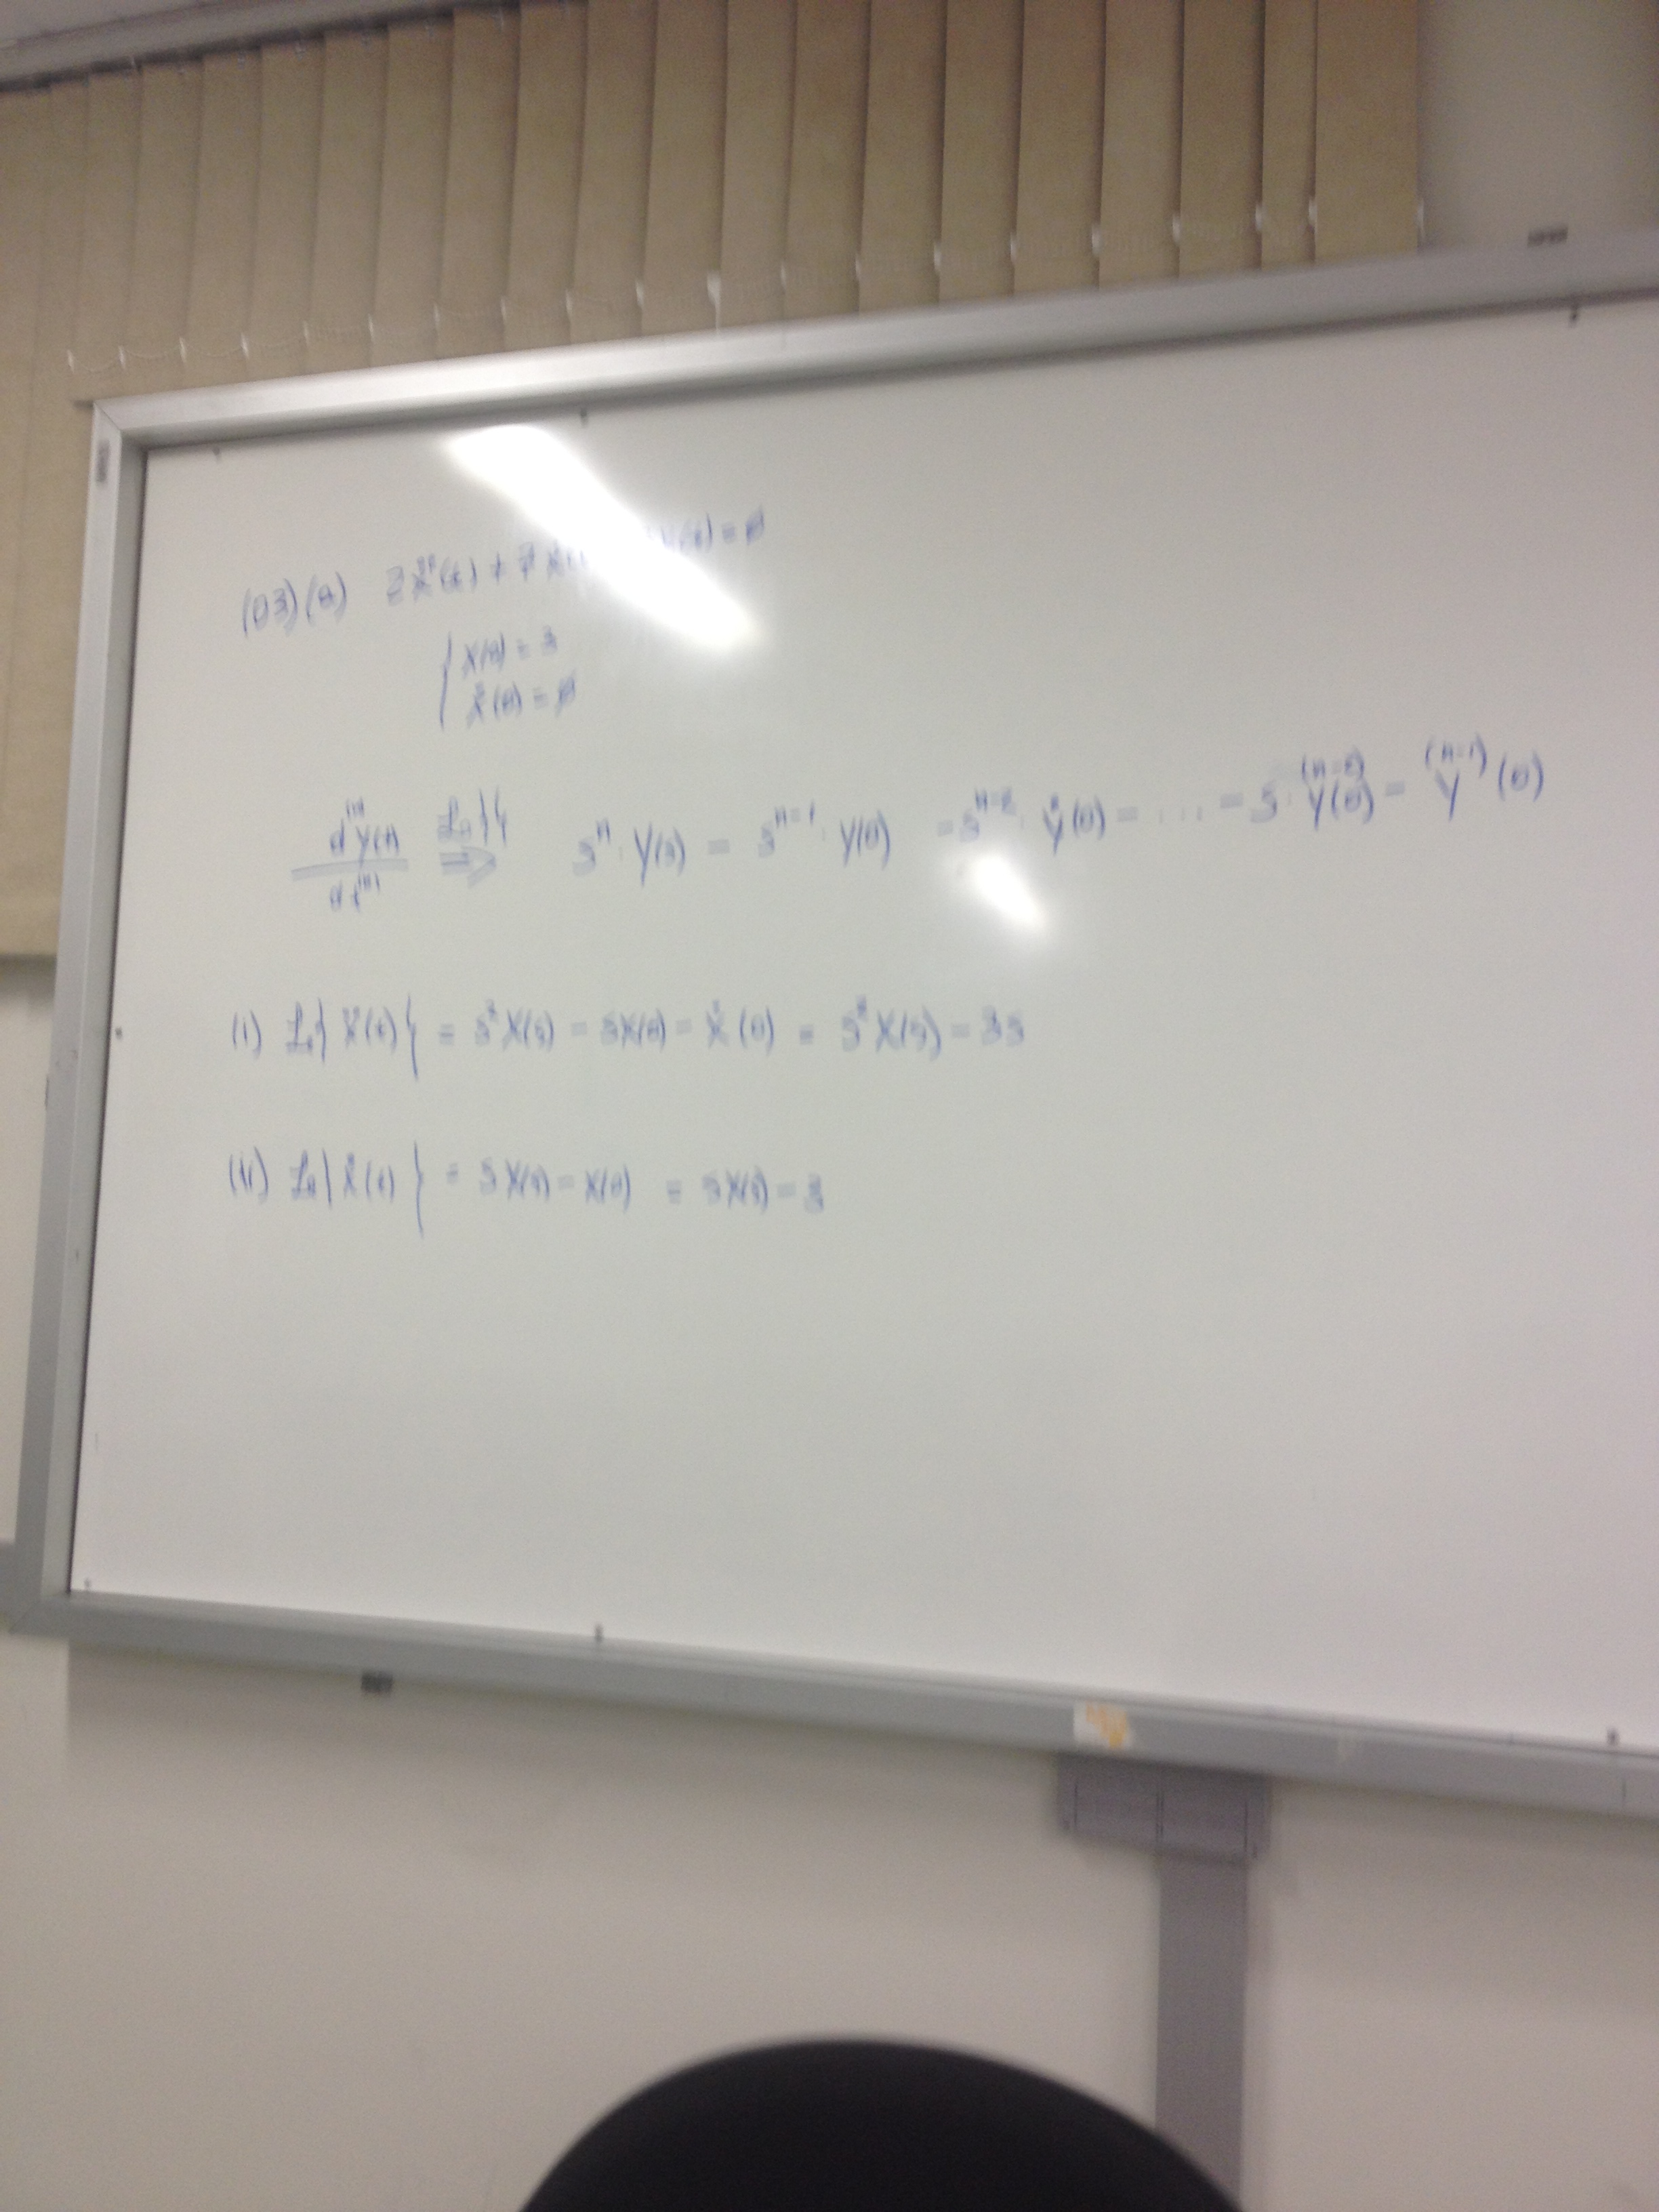 (03)(a) 2ẍ(t) + 7ẋ( x(t) = 0
{ x(0) = 3
ẋ(0) = 0
d⁽ⁿ⁾y(t) / dt⁽ⁿ⁾ ℒ{} ⇒ sⁿ · Y(s) − sⁿ⁻¹ · y(0) − sⁿ⁻² · ẏ(0) − ... − s · y⁽ⁿ⁻²⁾(0) − y⁽ⁿ⁻¹⁾(0)
(i) ℒ{ẍ(t)} = s²X(s) − sx(0) − ẋ(0) = s²X(s) − 3s
(ii) ℒ{ẋ(t)} = sX(s) − x(0) = sX(s) − 3